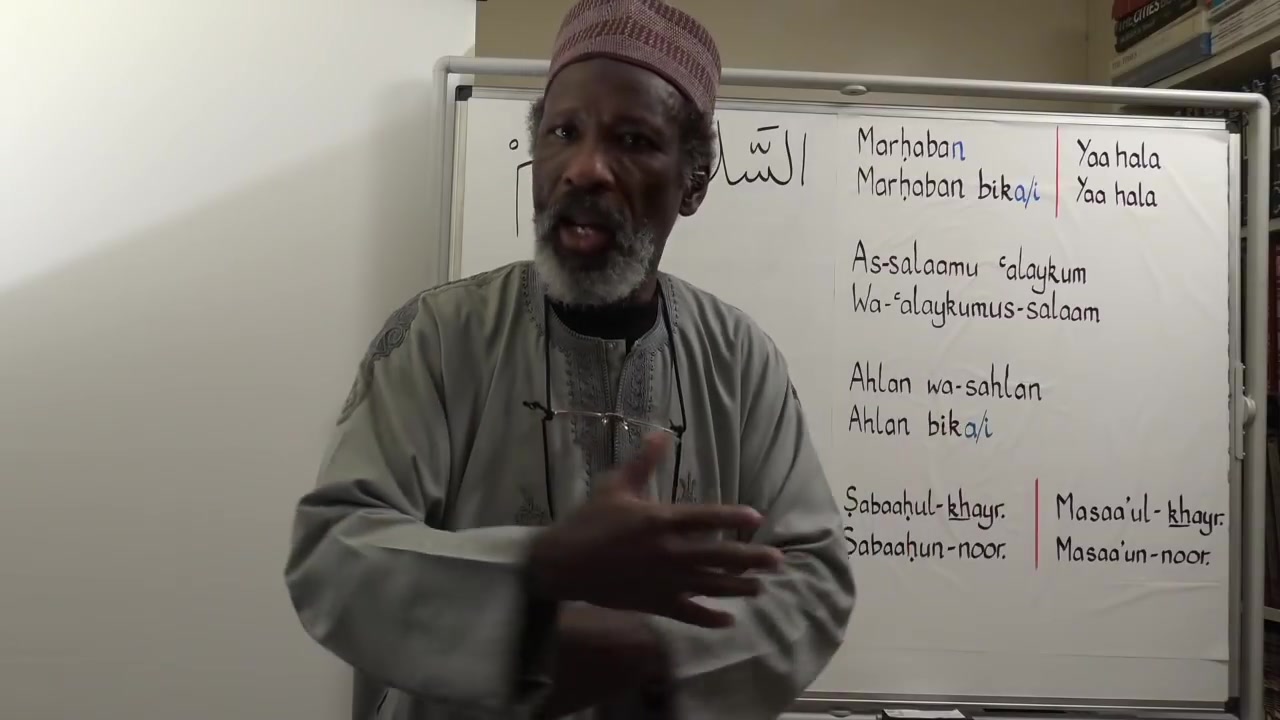 Marḥaban
Marḥaban bika/i
Yaa hala
Yaa hala
As-salaamu ʿalaykum
Wa-ʿalaykumus-salaam
Ahlan wa-sahlan
Ahlan bika/i
Ṣabaaḥul-khayr.
Ṣabaaḥun-noor.
Masaa'ul-khayr.
Masaa'un-noor.